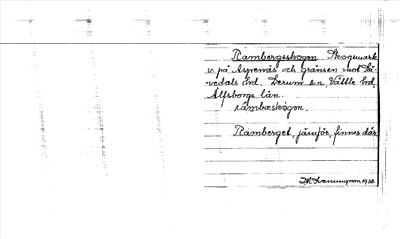 Rambergsskogen Skogsmark
v. på Aspenäs och gränsen mot Sä-
vedals hd. Lerum s:n Vättle hd,
Älfsborgs län.
rambæskogen.
Ramberget, jämför, finnes där
1932